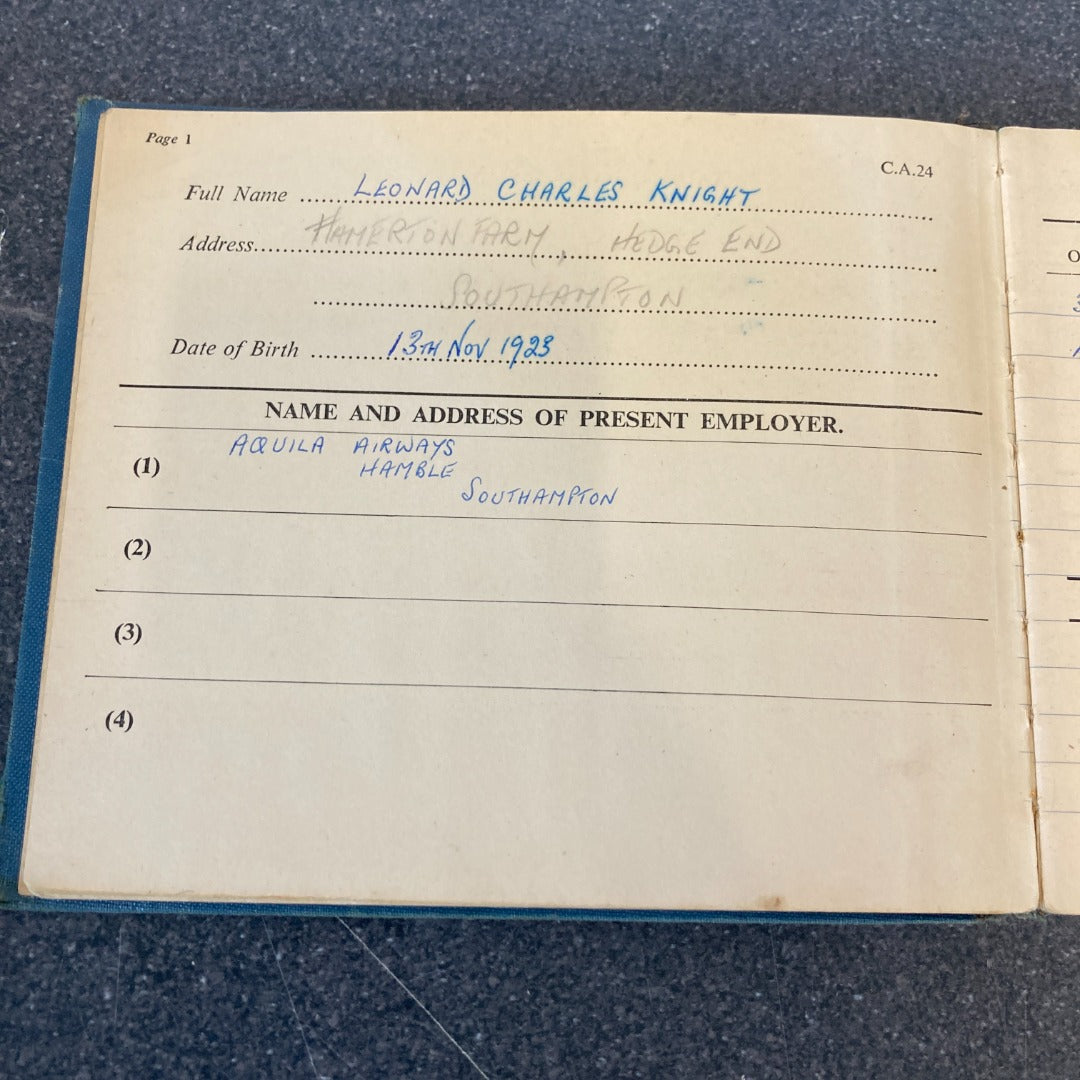 Page 1
C.A.24
Full Name LEONARD CHARLES KNIGHT
Address HAMERTON FARM, HEDGE END
SOUTHAMPTON
Date of Birth 13TH NOV 1923
NAME AND ADDRESS OF PRESENT EMPLOYER.
(1) AQUILA AIRWAYS
HAMBLE
SOUTHAMPTON
(2)
(3)
(4)